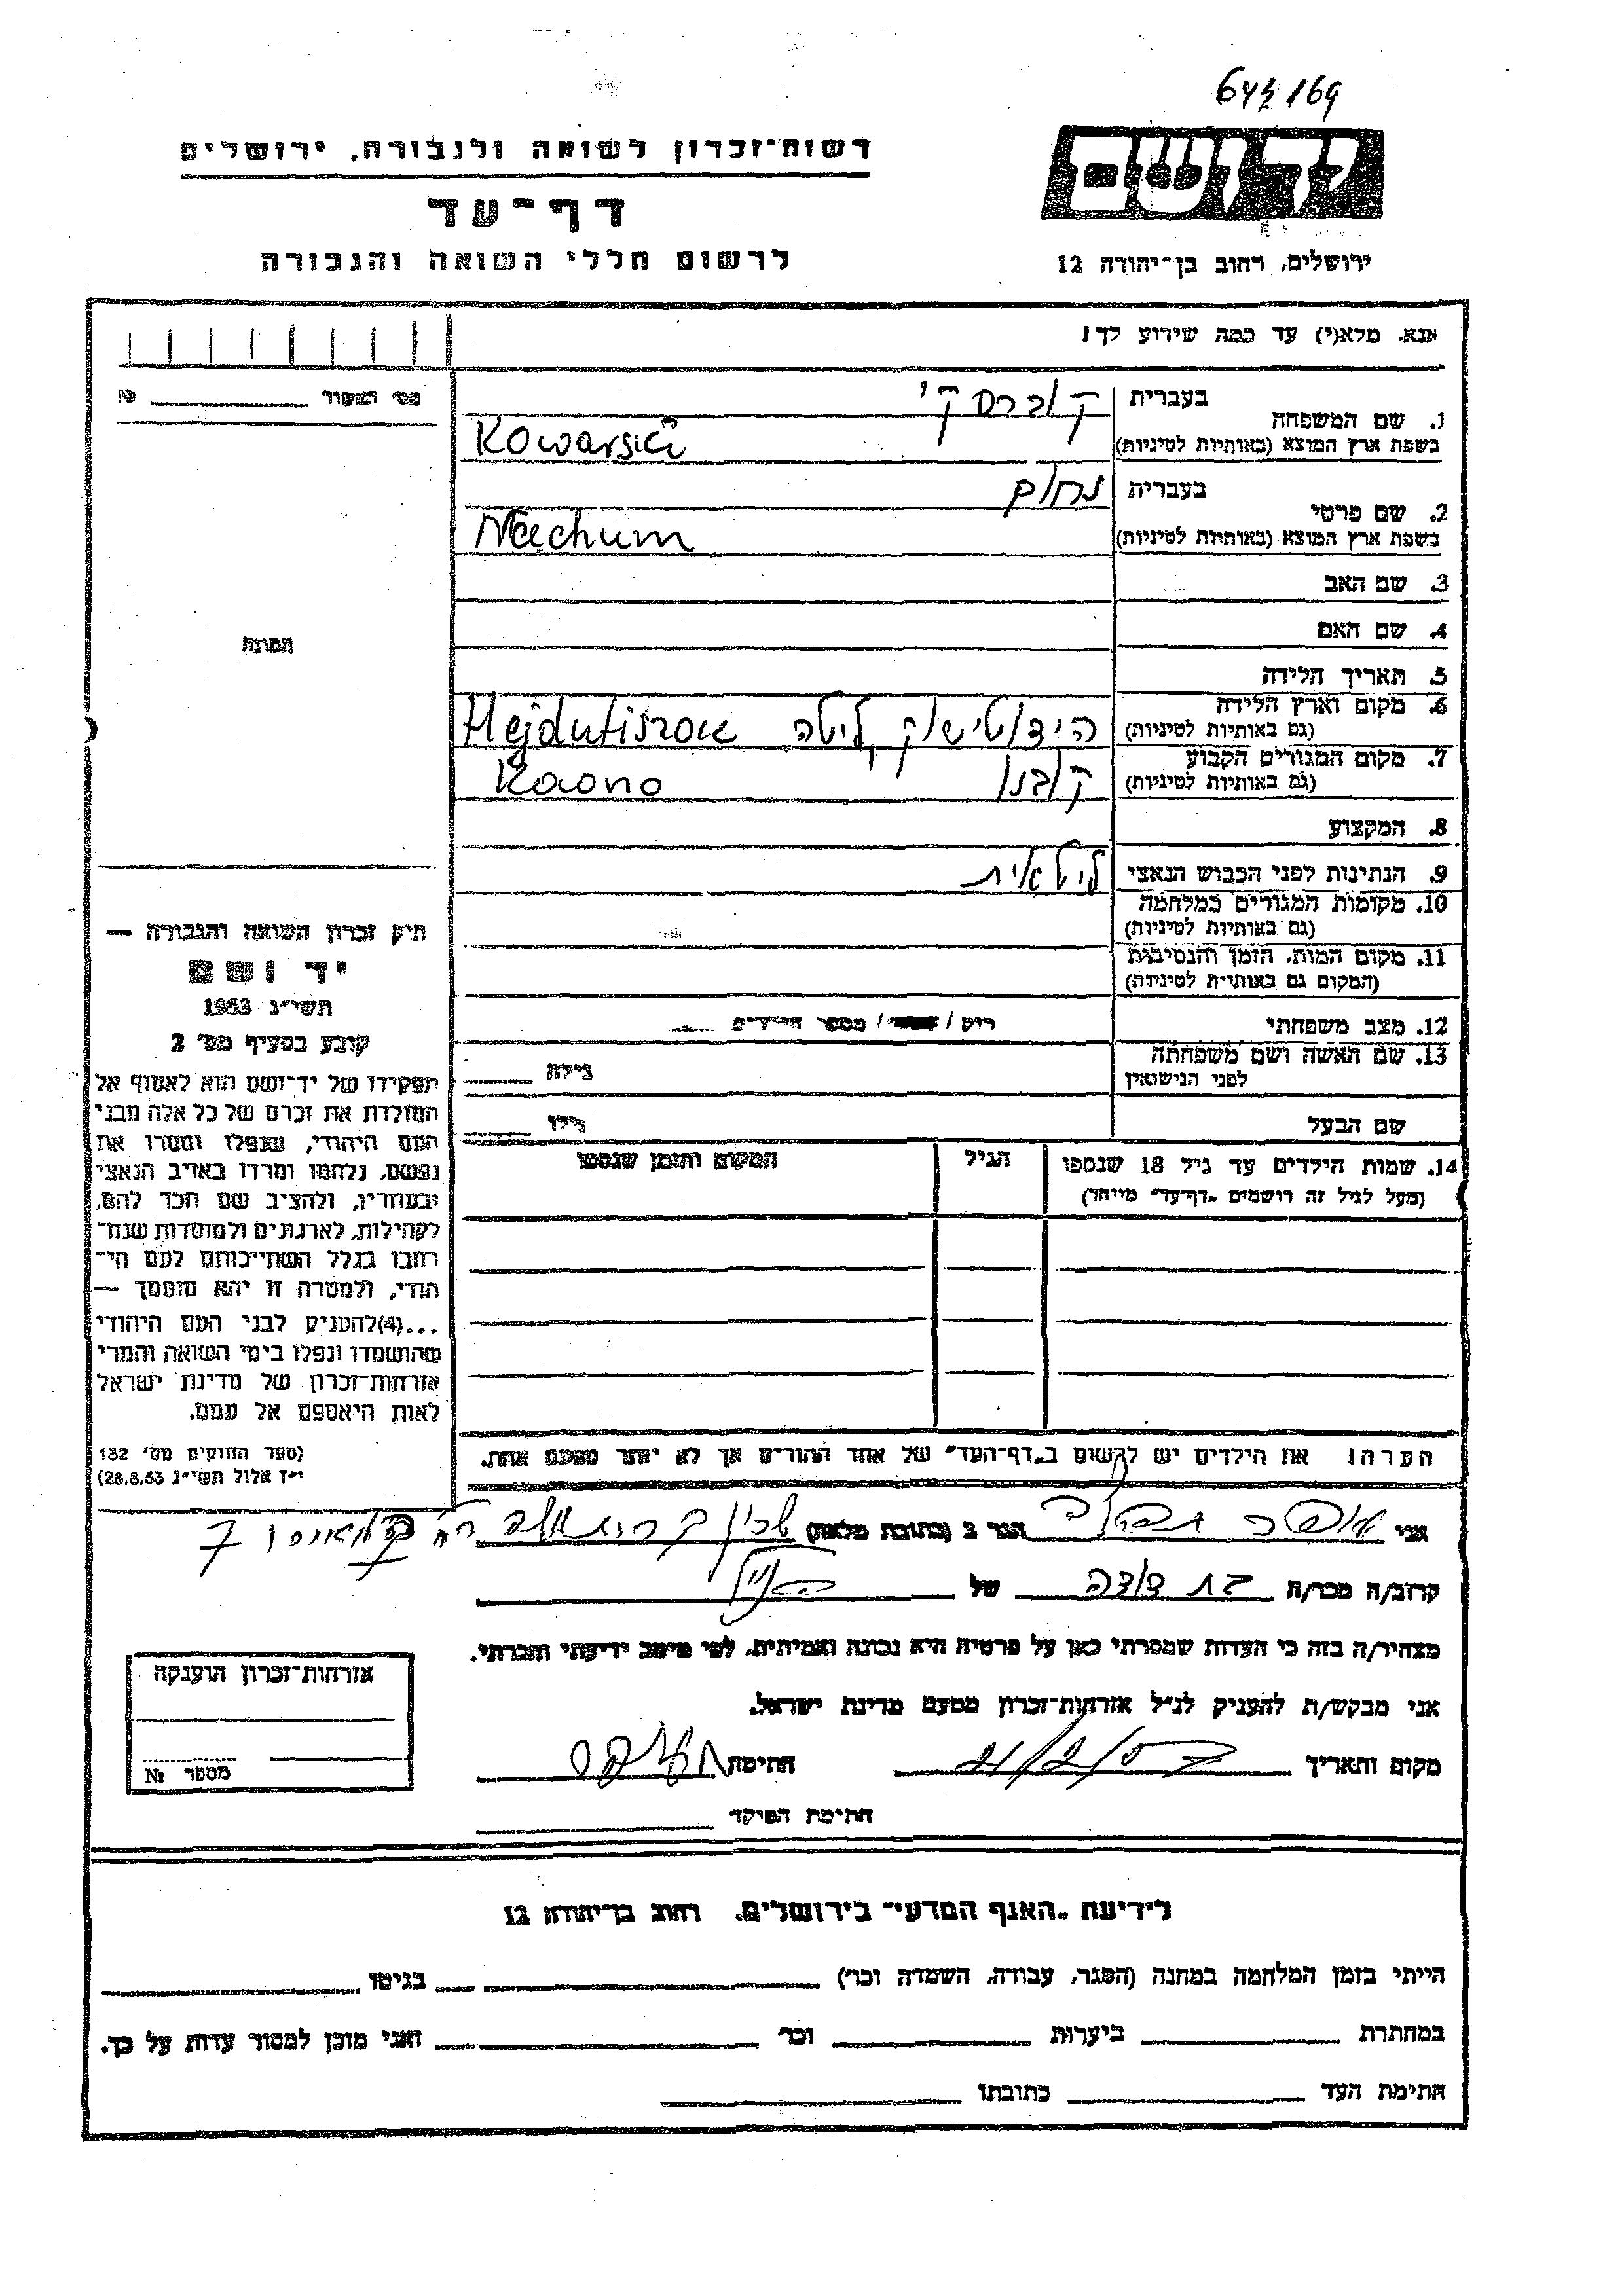 643/169
רשות־זכרון לשואה ולגבורה, ירושלים
דף־עד
לרשום חללי השואה והגבורה
ידושם
ירושלים, רחוב בן־יהודה 12
אנא, מלא(י) עד כמה שירוע לך!
מס' האשור № ________
1. שם המשפחה
בעברית קוברסקי
בשפת ארץ המוצא (באותיות לטיניות) Kowarski
2. שם פרטי
בעברית נחום
בשפת ארץ המוצא (באותיות לטיניות) Nachum
3. שם האב
4. שם האם
5. תאריך הלידה
6. מקום וארץ הלידה
(גם באותיות לטיניות) הידוטישוק, ליטה Hejdutiszok
7. מקום המגורים הקבוע
(גם באותיות לטיניות) קובנו Kovno
8. המקצוע
9. הנתינות לפני הכבוש הנאצי ליטאית
10. מקומות המגורים במלחמה
(גם באותיות לטיניות)
11. מקום המות, הזמן והנסיבות
(המקום גם באותיות לטיניות)
12. מצב משפחתי
מספר הילדים
13. שם האשה ושם משפחתה
לפני הנישואין
גילה
שם הבעל
גילו
14. שמות הילדים עד גיל 18 שנספו
(מעל לגיל זה רושמים "דף־עד" מיוחד)
הגיל
המקום והזמן שנספו
הערה! את הילדים יש לרשום ב"דף־העד" של אחד ההורים אך לא יותר מפעם אחת.
תמונה
חוק זכרון השואה והגבורה —
יד ושם
תשי"ג 1953
קובע בסעיף מס' 2
תפקידו של יד־ושם הוא לאסוף אל
המולדת את זכרם של כל אלה מבני
העם היהודי, שנפלו ומסרו את
נפשם, נלחמו ומרדו באויב הנאצי
ובעוזריו, ולהציב שם וזכר להם,
לקהילות, לארגונים ולמוסדות שנח־
רבו בגלל השתייכותם לעם הי־
הודי, ולמטרה זו יהא מוסמך —
...(4)להעניק לבני העם היהודי
שהושמדו ונפלו בימי השואה והמרי
אזרחות־זכרון של מדינת ישראל
לאות היאספם אל עמם.
(ספר החוקים מס' 132
י"ז אלול תשי"ג 28.8.53)
אני
הגר ב (כתובת מלאה) שכון 7
קרוב/ה מכר/ה בת דודה של
מצהיר/ה בזה כי העדות שמסרתי כאן על פרטיה היא נכונה ואמיתית, לפי מיטב ידיעתי והכרתי.
אני מבקש/ת להעניק לנ"ל אזרחות־זכרון מטעם מדינת ישראל.
מקום ותאריך
חתימת
חתימת הפוקד
אזרחות־זכרון הוענקה
מספר №
לידיעת "האגף המדעי" בירושלים, רחוב בן־יהודה 12
הייתי בזמן המלחמה במחנה (הסגר, עבודה, השמדה וכו') ________ בגיטו ________
במחתרת ________ ביערות ________ וכו' ________ ואני מוכן למסור עדות על כך.
חתימת העד ________ כתובתו ________